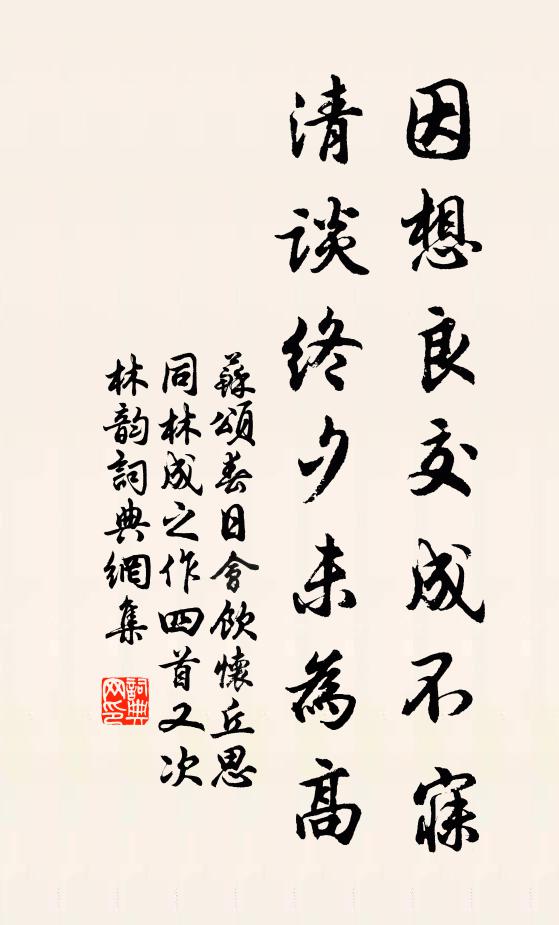 因想良交成不寐
清談終夕未為高
蘇頌春日會飲懷丘思
同林成之作四首又次
林韵詞典網集
詞典網印